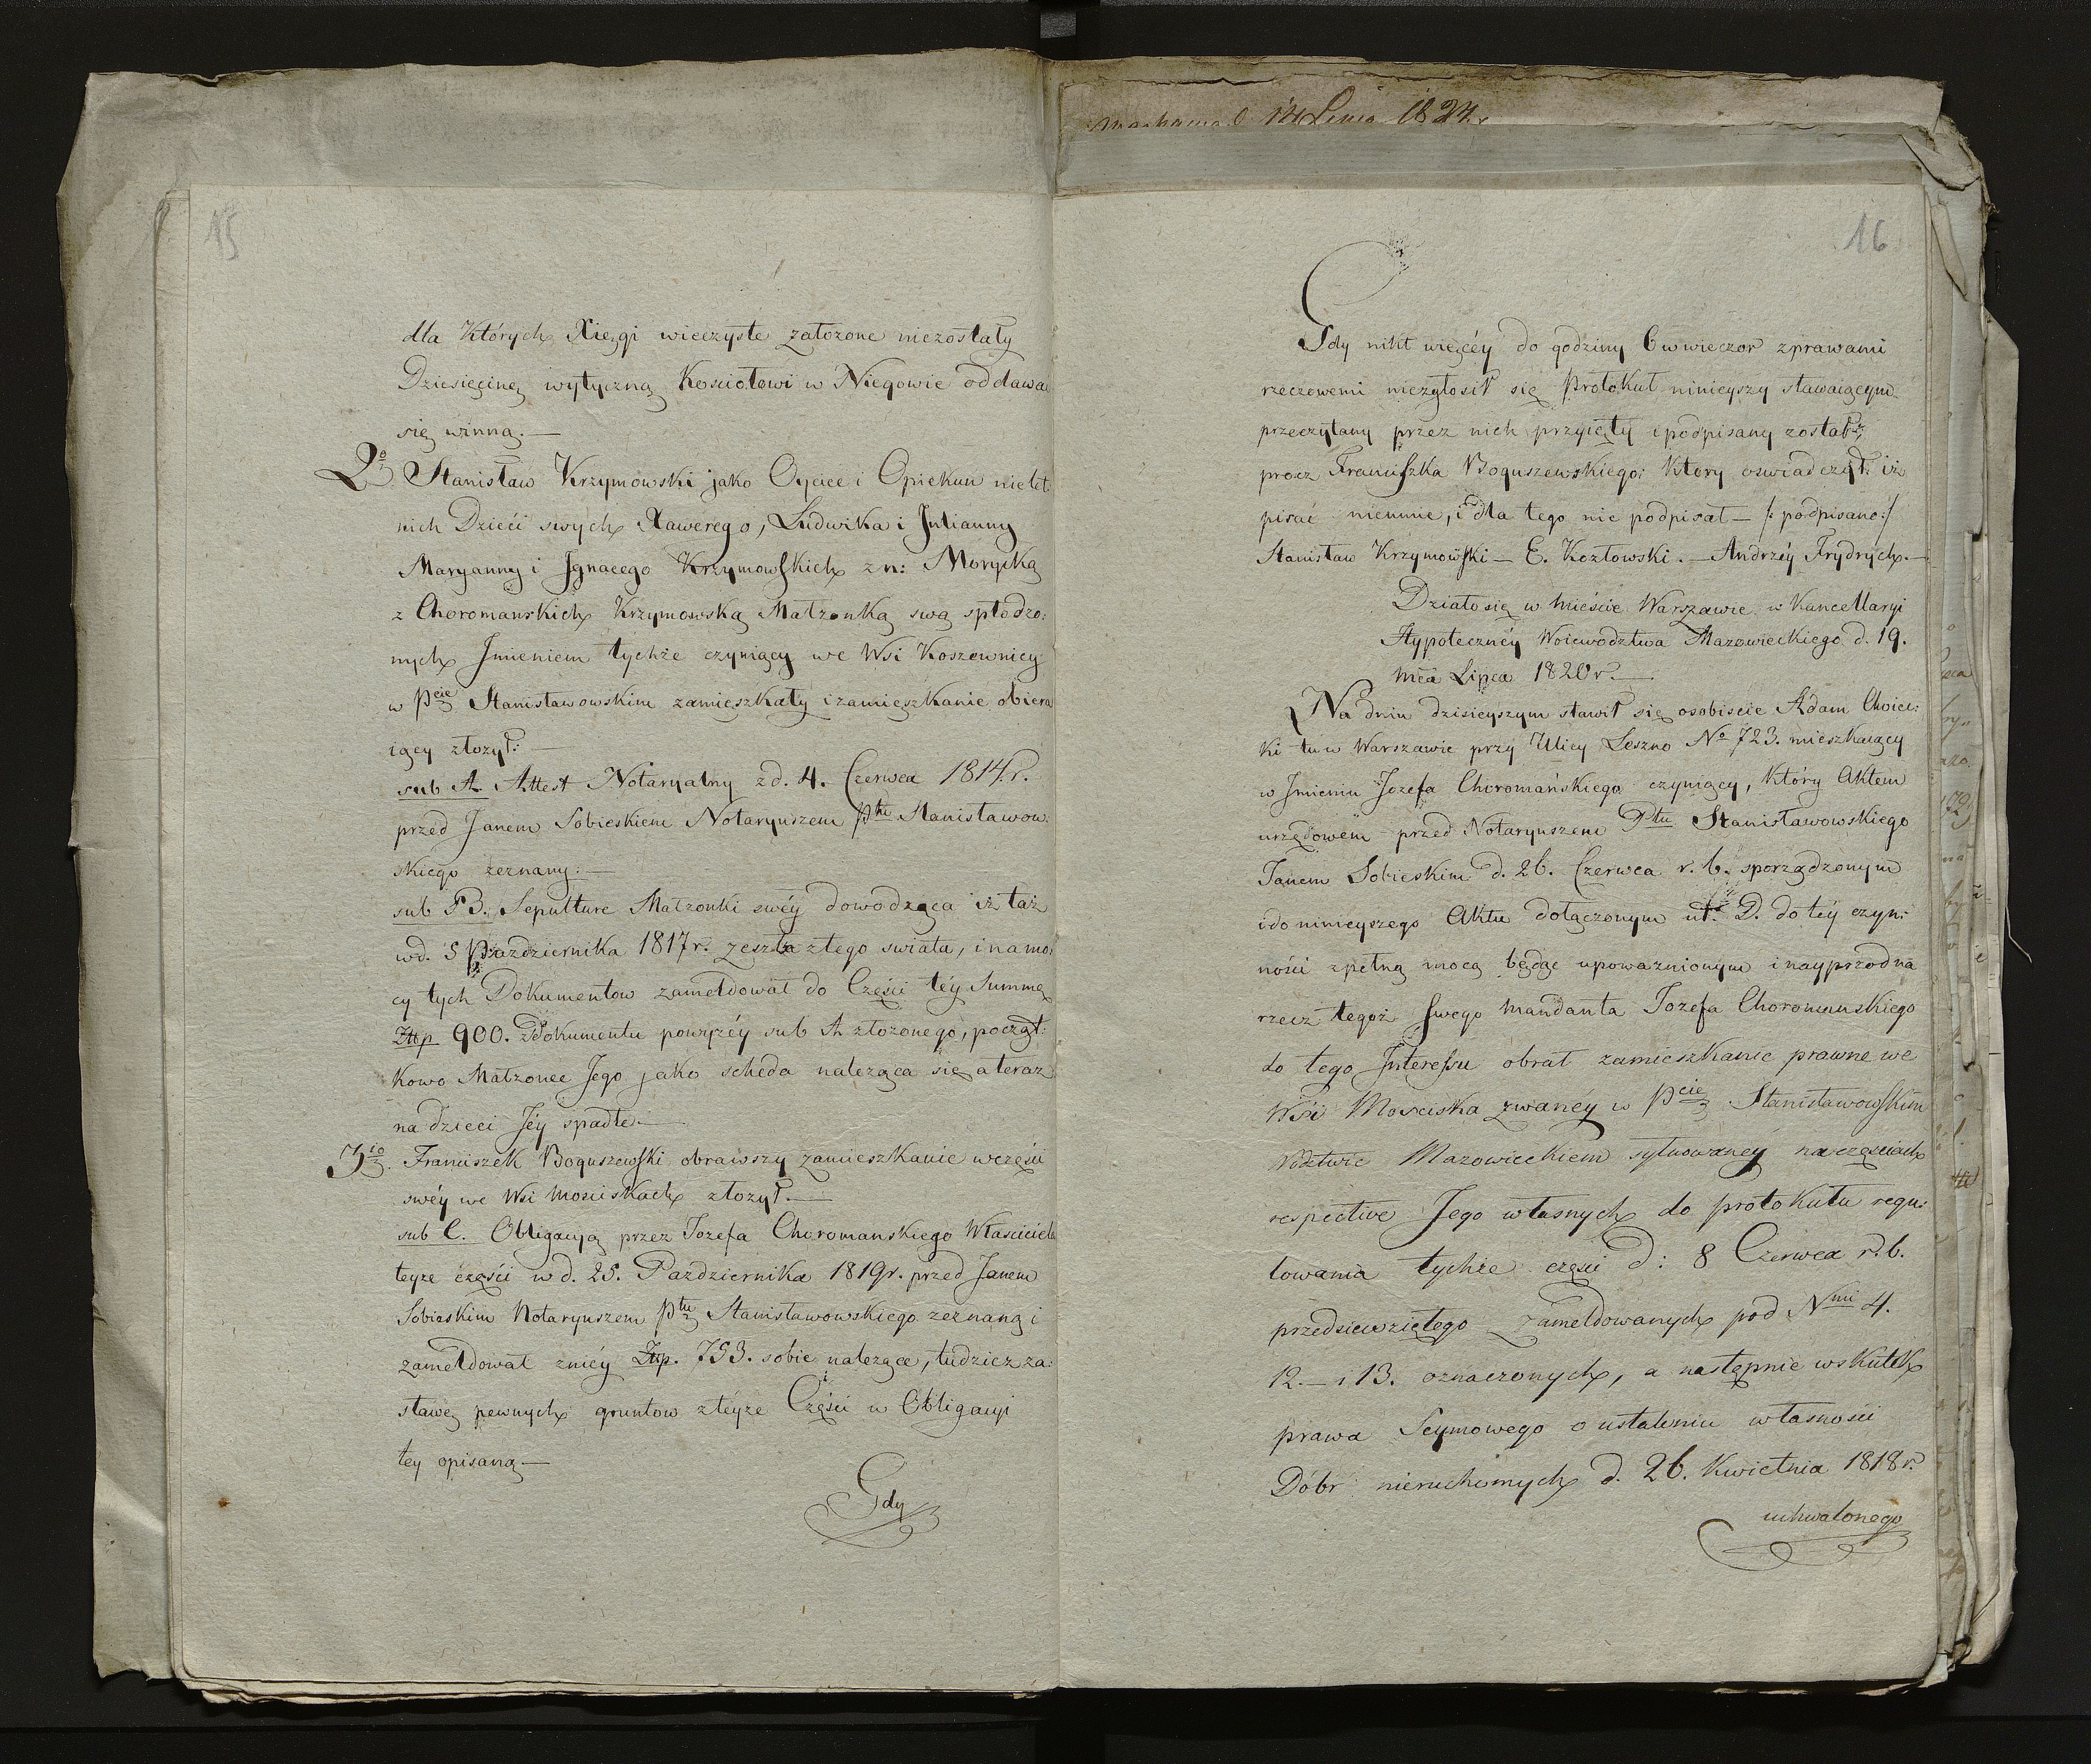 14 Lipca 1824 r.
15
dla Których Xięgi wieczyste założone niezostały
Dziesięcinę wytyczną Kościołowi w Niegowie oddawa
się winną.—
2o Stanisław Krzymowski jako Oyciec i Opiekun nielet:
nich Dzieći swych Xawerego, Ludwika i Julianny
Maryanny i Ignacego Krzymowskich z n: Morycką
z Choromanskich Krzymowską Małżonką swą spłodzo:
nych Imieniem tychże czyniący we Wsi Koszewnicy
w Pcie Stanisławowskim zamięszkały i zamięszkanie obiera
iący złożył:—
sub A. Attest Notaryalny z d. 4. Czerwca 1814. r.
przed Janem Sobieskiem Notaryuszem Ptu Stanisławow:
skiego zeznany:—
sub B. Sepulture Małżonki swéy dowodząca iż taż
w d. 5 Pazdziernika 1817 r. zeszła z tego swiata, i na mo:
cy tych Dokumentow zameldował do Części téy Summę
Złtp 900. z Dokumentu powyzéy sub A złożonego, począt:
kowo Małżonce Jego jako scheda należąca się a teraz
na dzieci Jéy spadłe.—
3io. Franciszek Boguszewski obrawszy zamieszkanie w części
swéy we Wsi Mościskach złożył.—
sub C. Obligacyą przez Jozefa Choromanskiego Właściciela
teyże części w d. 25. Pazdziernika 1819 r. przed Janem
Sobieskim Notaryuszem Ptu Stanisławowskiego zeznaną i
zameldował z niéy Złtp. 753. sobie należące, tudzież za:
stawę pewnych gruntow z téyże Części w Obligacyi
tey opisaną—
Gdy
16
Gdy nikt więcéy do godziny 6 w wieczor z prawami
rzeczowemi niezgłosił się Protokuł ninieyszy stawaiącym
przeczytany przez nich przyięty i podpisany został,
procz Franciszka Boguszewskiego, Ktory oswiadczył iż
pisać nieumie, i dla tego nie podpisał — /: podpisano :/
Stanisław Krzymowski — E. Kozłowski. — Andrzéy Frydrych.—
Działo się w Mieście Warszawie w Kancellaryi
Hypoteczney Woiewodztwa Mazowieckiego d. 19.
mca Lipca 1820 r.—
Na dniu dzisieyszym stawił się osobiscie Adam Choiec:
ki tu w Warszawie przy Ulicy Leszno No 723. mieszkaiący
w Imieniu Jozefa Choromańskiego czyniący, Który Aktem
urzędowem przed Notaryuszem Ptu Stanisławowskiego
Janem Sobieskim d. 26. Czerwca r. b. sporządzonym
i do ninieyszego Aktu dołączonym D. do téy czyn:
ności z pełną mocą będąc upoważnionym i nayprzod na
rzecz tegoż swego Mandanta Jozefa Choromanskiego
do tego Interessu obrał zamieszkanie prawne we
Wsi Mosciska zwanéy w Pcie Stanisławowskim
Wdztwie Mazowieckiem sytuowanéy na częściach
respective Jego własnych do protokułu regu:
lowania tychże części d: 8 Czerwca r. b.
przedsiewziętego zameldowanych pod Nmi 4.
12. — i 13. oznaczonych, a następnie w skutek
prawa Seymowego o ustaleniu własności
Dóbr nieruchomych d. 26. Kwietnia 1818 r.
uchwalonego